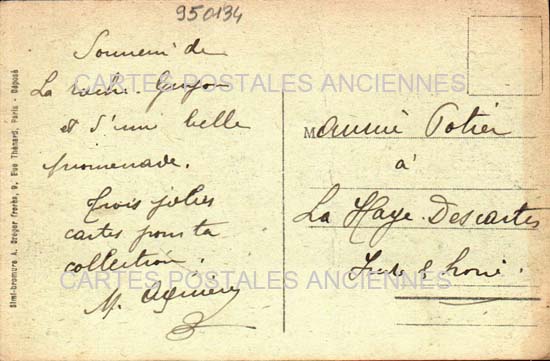 950134
Souvenir de
La roche. Guyon
et d'une belle
promenade.
Trois jolies
cartes pour ta
collection.
M.
Mannie Potier
à
La Haye-Descartes
Indre & Loire.
CARTES POSTALES ANCIENNES
CARTES POSTALES ANCIENNES
Simi-bromure A. Breger frères, 9, Rue Thénard, Paris - Déposé